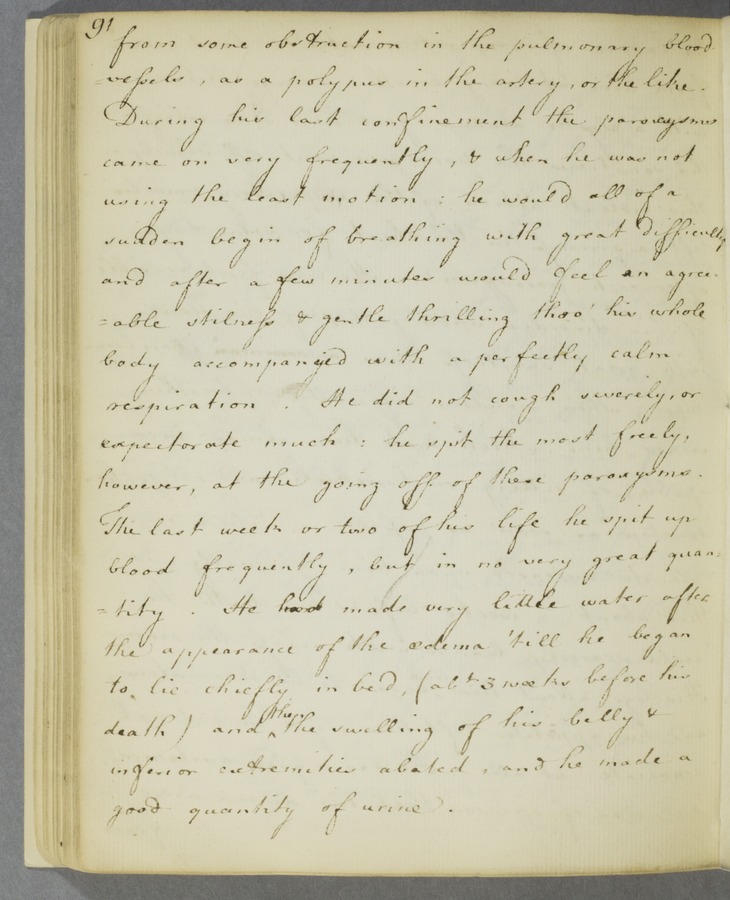 91
from some obstruction in the pulmonary blood
=vessels, as a polypus in the artery, or the like.
During his last confinement the paroxysms
came on very frequently, & when he was not
using the least motion: he would all of a
sudden begin of breathing with great difficulty
and after a few minutes would feel an agree-
=able stilness & gentle thrilling thro' his whole
body accompanyed with a perfectly calm
respiration. He did not cough severely, or
expectorate much: he spit the most freely,
however, at the going off of these paroxysms.
The last week or two of his life he spit up
blood frequently, but in no very great quan=
=tity. He had made very little water after
the appearance of the œdema 'till he began
to lie chiefly in bed, (abt 3 weeks before his
death) and then the swelling of his belly &
inferior extremities abated, and he made a
good quantity of urine.